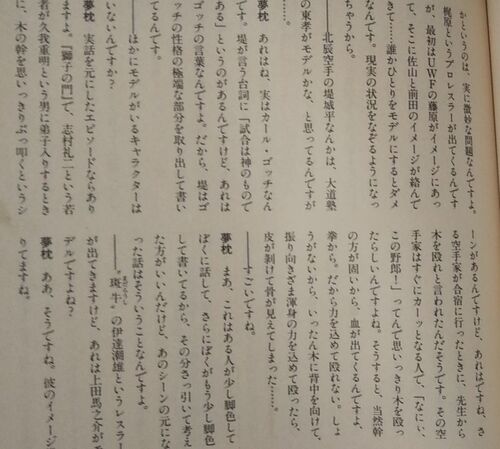 かというのは、実に微妙な問題なんですよ。
梶原というプロレスラーが出てくるんです
が、最初はUWFの藤原がイメージにあっ
て、そこに佐山と前田のイメージが絡んで
きて……誰かひとりをモデルにするとダメ
なんです。現実の状況をなぞるようになっ
ちゃうから。
――北辰空手の堤城平なんかは、大道塾
の東孝がモデルかな、と思ってるんですが
……。
夢枕　あれはね、実はカール・ゴッチなん
です。堤が言う台詞に「試合は神のもので
ある」というのがあるんですけど、あれは
ゴッチの言葉なんですよ。だから、堤はゴ
ッチの性格の極端な部分を取り出して書い
てるんです。
――ほかにモデルがいるキャラクターは
いないんですか?
夢枕　実話を元にしたエピソードならあり
ますよ。『獅子の門』で、志村礼二という若
者が久我重明という男に弟子入りするとき
に、木の幹を思いっきりぶっ叩くというシ
ーンがあるんですけど、あれはですね、さ
る空手家が合宿に行ったときに、先生から
木を殴れと言われたんだそうです。その空
手家はすぐにカーッとなる人で、「なにい、
この野郎!」ってんで思いっきり木を殴っ
たらしいんですよね。そうすると、当然幹
の方が固いから、血が出てくるんですよ、
拳から。だから力を込めて殴れない。しょ
うがないから、いったん木に背中を向けて、
振り向きざま渾身の力を込めて殴ったら、
皮が剥けて骨が見えてしまった……。
――すごいですね。
夢枕　まあ、これはある人が少し脚色して
ぼくに話して、さらにぼくがもう少し脚色
して書いてるから、その分さっ引いて考え
た方がいいんだけど、あのシーンの元にな
った話はそういうことなんですよ。
――〝斑牛〟の伊達潮雄というレスラー
が出てきますけど、あれは上田馬之介がモ
デルですよね?
夢枕　ああ、そうですね。彼のイメージ
りてますね。